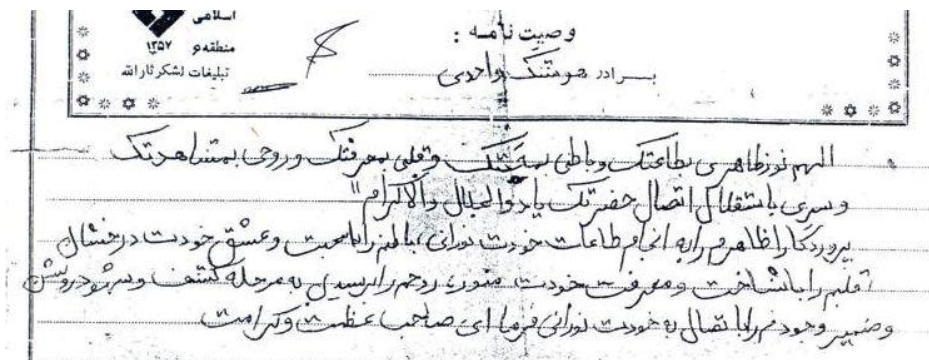 اسلامی
منطقه ۶ ۱۳۵۷
تبلیغات لشکر ثارالله
وصیت نامه :
برادر هوشنگ واحدی
اللهم نور ظاهری بطاعتک وباطنی بمحبتک وقلبی بمعرفتک وروحی بمشاهدتک
وسری باستقلال اتصال حضرتک یا ذوالجلال والاکرام"
پروردگارا ظاهرم را به انجام طاعات خودت نورانی، باطنم را با محبت وعشق خودت درخشان
قلبم را با شناخت ومعرفت خودت منور، روحم را برسیدن به مرحله کشف وشهود روشن
وضمیر وجودم را با اتصال به خودت نورانی فرما ای صاحب عظمت وکرامت